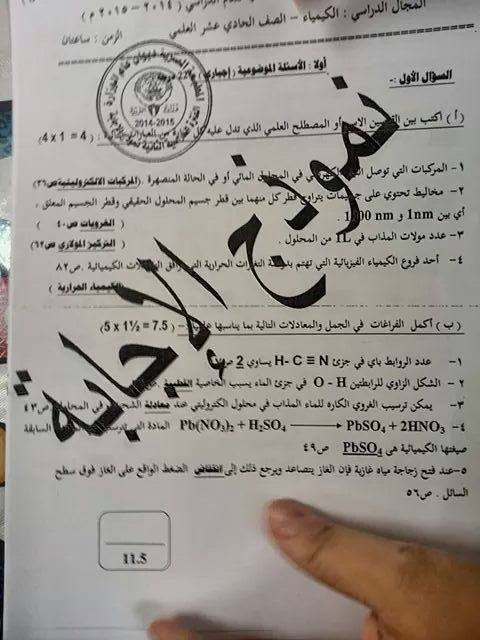 المجال الدراسي : الكيمياء - الصف الحادي عشر العلمي
الزمن: ساعتان
(٢٠١٤ - ٢٠١٥ م)
أولا: الأسئلة الموضوعية (إجباري)
السؤال الأول :-
2014-2015
(أ) أكتب بين القوسين الاسم أو المصطلح العلمي الذي تدل عليه كل من العبارات : (4 x 1 = 4)
١- المركبات التي توصل التيار الكهربائي في المحلول المائي أو في الحالة المنصهرة . (المركبات الالكتروليتية ص٣٦)
٢- مخاليط تحتوي على جسيمات يتراوح قطر كل منهما بين قطر جسيم المحلول الحقيقي وقطر الجسيم المعلق ،
أي بين 1nm و 1000 nm . (الغرويات ص٤٠)
٣- عدد مولات المذاب في 1L من المحلول . (التركيز المولاري ص٦٢)
٤- أحد فروع الكيمياء الفيزيائية التي تهتم بدراسة التغيرات الحرارية التي ترافق التفاعلات الكيميائية . ص٨٢
(الكيمياء الحرارية)
(ب) أكمل الفراغات في الجمل والمعادلات التالية بما يناسبها علمياً :- (5 x 1½ = 7.5)
١- عدد الروابط باي في جزئ H- C ≡ N يساوي 2
٢- الشكل الزاوي للرابطتين O - H في جزئ الماء يسبب الخاصية القطبية
٣- يمكن ترسيب الغروي الكاره للماء المذاب في محلول الكتروليتي عند معادلة الشحنات في المحلول ص٤٣
٤- Pb(NO₃)₂ + H₂SO₄ ⟶ PbSO₄ + 2HNO₃ المادة التي السابقة
صيغتها الكيميائية هى PbSO₄ ص٤٩
٥- عند فتح زجاجة مياه غازية فإن الغاز يتصاعد ويرجع ذلك إلى انخفاض الضغط الواقع علي الغاز فوق سطح
السائل . ص٥٦
11.5
نموذج الإجابة